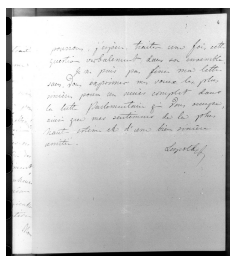 pourrons, j'espère, traiter une fois cette
question verbalement dans son ensemble.
Je ne puis pas finir ma lettre
sans Vous exprimer mes vœux les plus
sincères pour un succès complet dans
la lutte Parlementaire qui Vous occupe
ainsi que mes sentiments de la plus
haute estime et d'une bien sincère
amitié.
Leopold